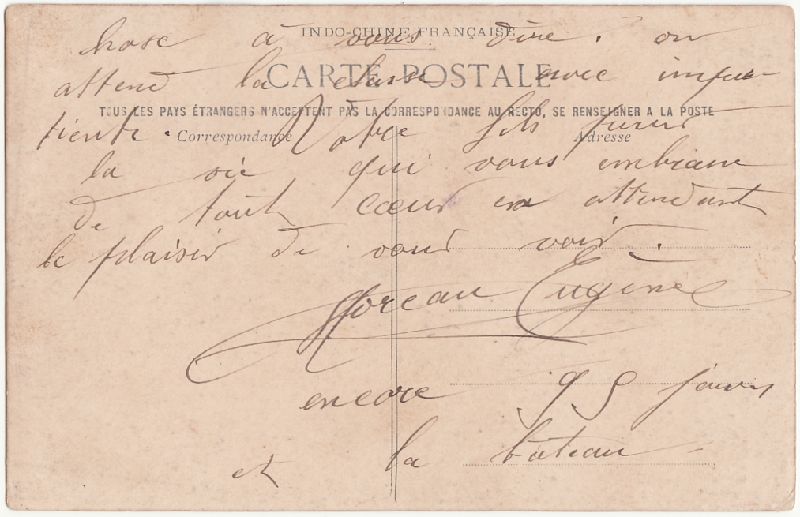 INDO-CHINE FRANÇAISE
CARTE POSTALE
TOUS LES PAYS ÉTRANGERS N'ACCEPTENT PAS LA CORRESPONDANCE AU RECTO, SE RENSEIGNER A LA POSTE
Correspondance
Adresse
hose à vous dire. on
attend la classe avec impa
tiente. Votre fils pour
la vie qui vous embrasse
de tout cœur en attendant
le plaisir de vous voir.
Moreau Eugène
encore 95 jours
et la bateau